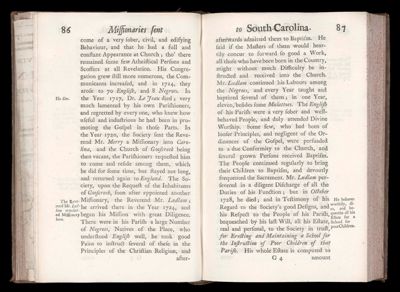 86 Missionaries sent
come of a very sober, civil, and edifying
Behaviour, and that he had a full and
constant Appearance at Church; tho' there
remained some few Atheistical Persons and
Scoffers at all Revelation. His Congre-
gation grew still more numerous, the Com-
municants increased, and in 1714, they
arose to 70 English, and 8 Negroes. In
the Year 1717, Dr. Le Jeau died; very
much lamented by his own Parishioners,
and regretted by every one, who knew how
useful and industrious he had been in pro-
moting the Gospel in those Parts. In
the Year 1720, the Society sent the Reve-
rend Mr. Merry a Missionary into Caro-
lina, and the Church of Goosecreek being
then vacant, the Parishioners requested him
to come and reside among them, which
he did for some time, but stayed not long,
and returned again to England. The So-
ciety, upon the Request of the Inhabitants
of Goosecreek, soon after appointed another
Missionary, the Reverend Mr. Ludlam;
he arrived there in the Year 1724, and
began his Mission with great Diligence.
There were in his Parish a large Number
of Negroes, Natives of the Place, who
understood English well, he took good
Pains to instruct several of these in the
Principles of the Christian Religion, and
after-
to South-Carolina. 87
afterwards admitted them to Baptism. He
said if the Masters of them would hear-
tily concur to forward so good a Work,
all those who have been born in the Country,
might without much Difficulty be in-
structed and received into the Church.
Mr. Ludlam continued his Labours among
the Negroes, and every Year taught and
baptized several of them; in one Year,
eleven, besides some Mulattoes. The English
of his Parish were a very sober and well-
behaved People, and duly attended Divine
Worship. Some few, who had been of
looser Principles, and negligent of the Or-
dinances of the Gospel, were persuaded
to a due Conformity to the Church, and
several grown Persons received Baptism.
The People continued regularly to bring
their Children to Baptism, and devoutly
frequented the Sacrament. Mr. Ludlam per-
severed in a diligent Discharge of all the
Duties of his Function; but in October
1728, he died; and in Testimony of his
Regard to the Society's good Designs, and
his Respect to the People of his Parish,
bequeathed by his last Will, all his Estate,
real and personal, to the Society in trust,
for Erecting and Maintaining a School for
the Instruction of Poor Children of that
Parish. His whole Estate is computed to
G 4 amount